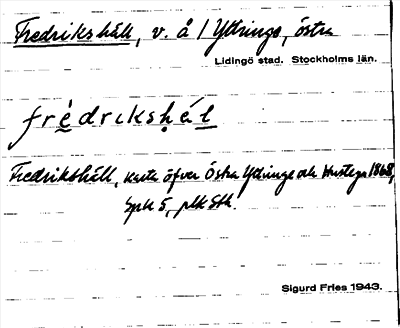 Fredrikshäll, v. å / Yttringe, östra
Lidingö stad. Stockholms län.
frédrikshél
Fredrikshäll, karta öfver Östra Yttringe och Hustega 1868,
Spk 5, plk Sth.
Sigurd Fries 1943.